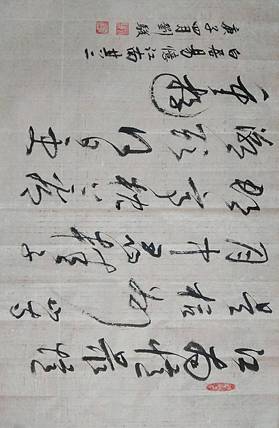 江南憶最憶
是杭州山寺
月中尋桂子
郡亭枕上看
潮頭何日更
重遊
白居易憶江南其二
庚子四月劉